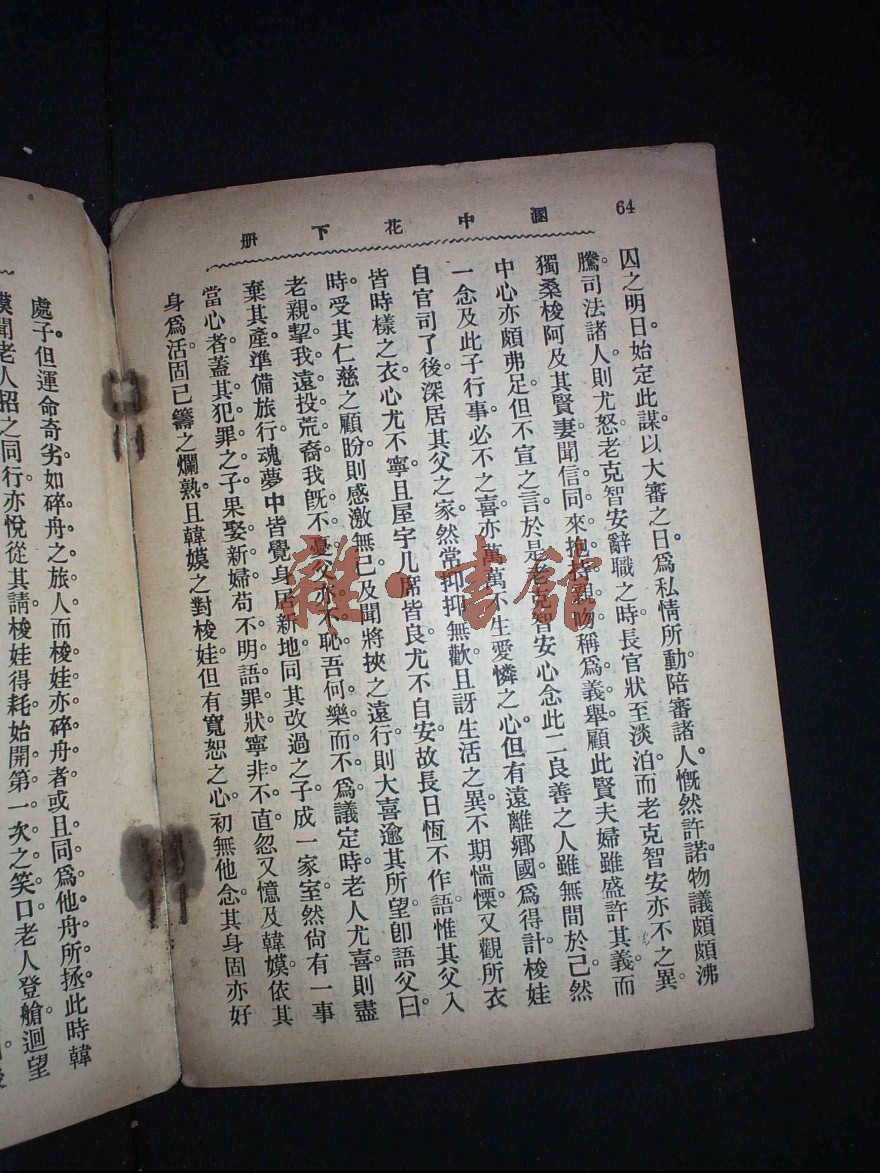 64
溷中花下册
囚之明日。始定此謀。以大審之日。爲私情所動。陪審諸人。慨然許諾。物議頗頗沸
騰。司法諸人。則尤怒老克智安辭職之時。長官狀至淡泊。而老克智安亦不之異。
獨桑梭阿及其賢妻聞信同來。抱持親吻。稱爲義舉。顧此賢夫婦雖盛許其義。而
中心亦頗弗足。但不宣之言。於是老克智安心念此二良善之人。雖無間於己。然
一念及此子行事。必不之喜。亦萬萬不生愛憐之心。但有遠離鄉國。爲得計。梭娃
自官司了後。深居其父之家。然常抑抑無歡。且訝生活之異。不期惴慄。又觀所衣
皆時樣之衣。心尤不寧。且屋宇几席皆良。尤不自安。故長日恆不作語。惟其父入
時。受其仁慈之顧盼。則感激無已。及聞將挾之遠行。則大喜逾其所望。卽語父曰。
老親挈我遠投荒裔。我旣不憂。父亦不恥。吾何樂而不爲。議定時。老人尤喜。則盡
棄其產。準備旅行。魂夢中皆覺身居新地。同其改過之子成一家室。然尙有一事
當心者。蓋其犯罪之子。果娶新婦。苟不明語罪狀。寧非不直。忽又憶及韓嫫依其
身爲活。固已籌之爛熟。且韓嫫之對梭娃。但有寬恕之心。初無他念。其身固亦好
處子。但運命奇劣。如碎舟之旅人。而梭娃亦碎舟者。或且同爲他舟所拯。此時韓
嫫聞老人招之同行。亦悅從其請。梭娃得耗。始開第一次之笑口。老人登艙迴望
雜·書館